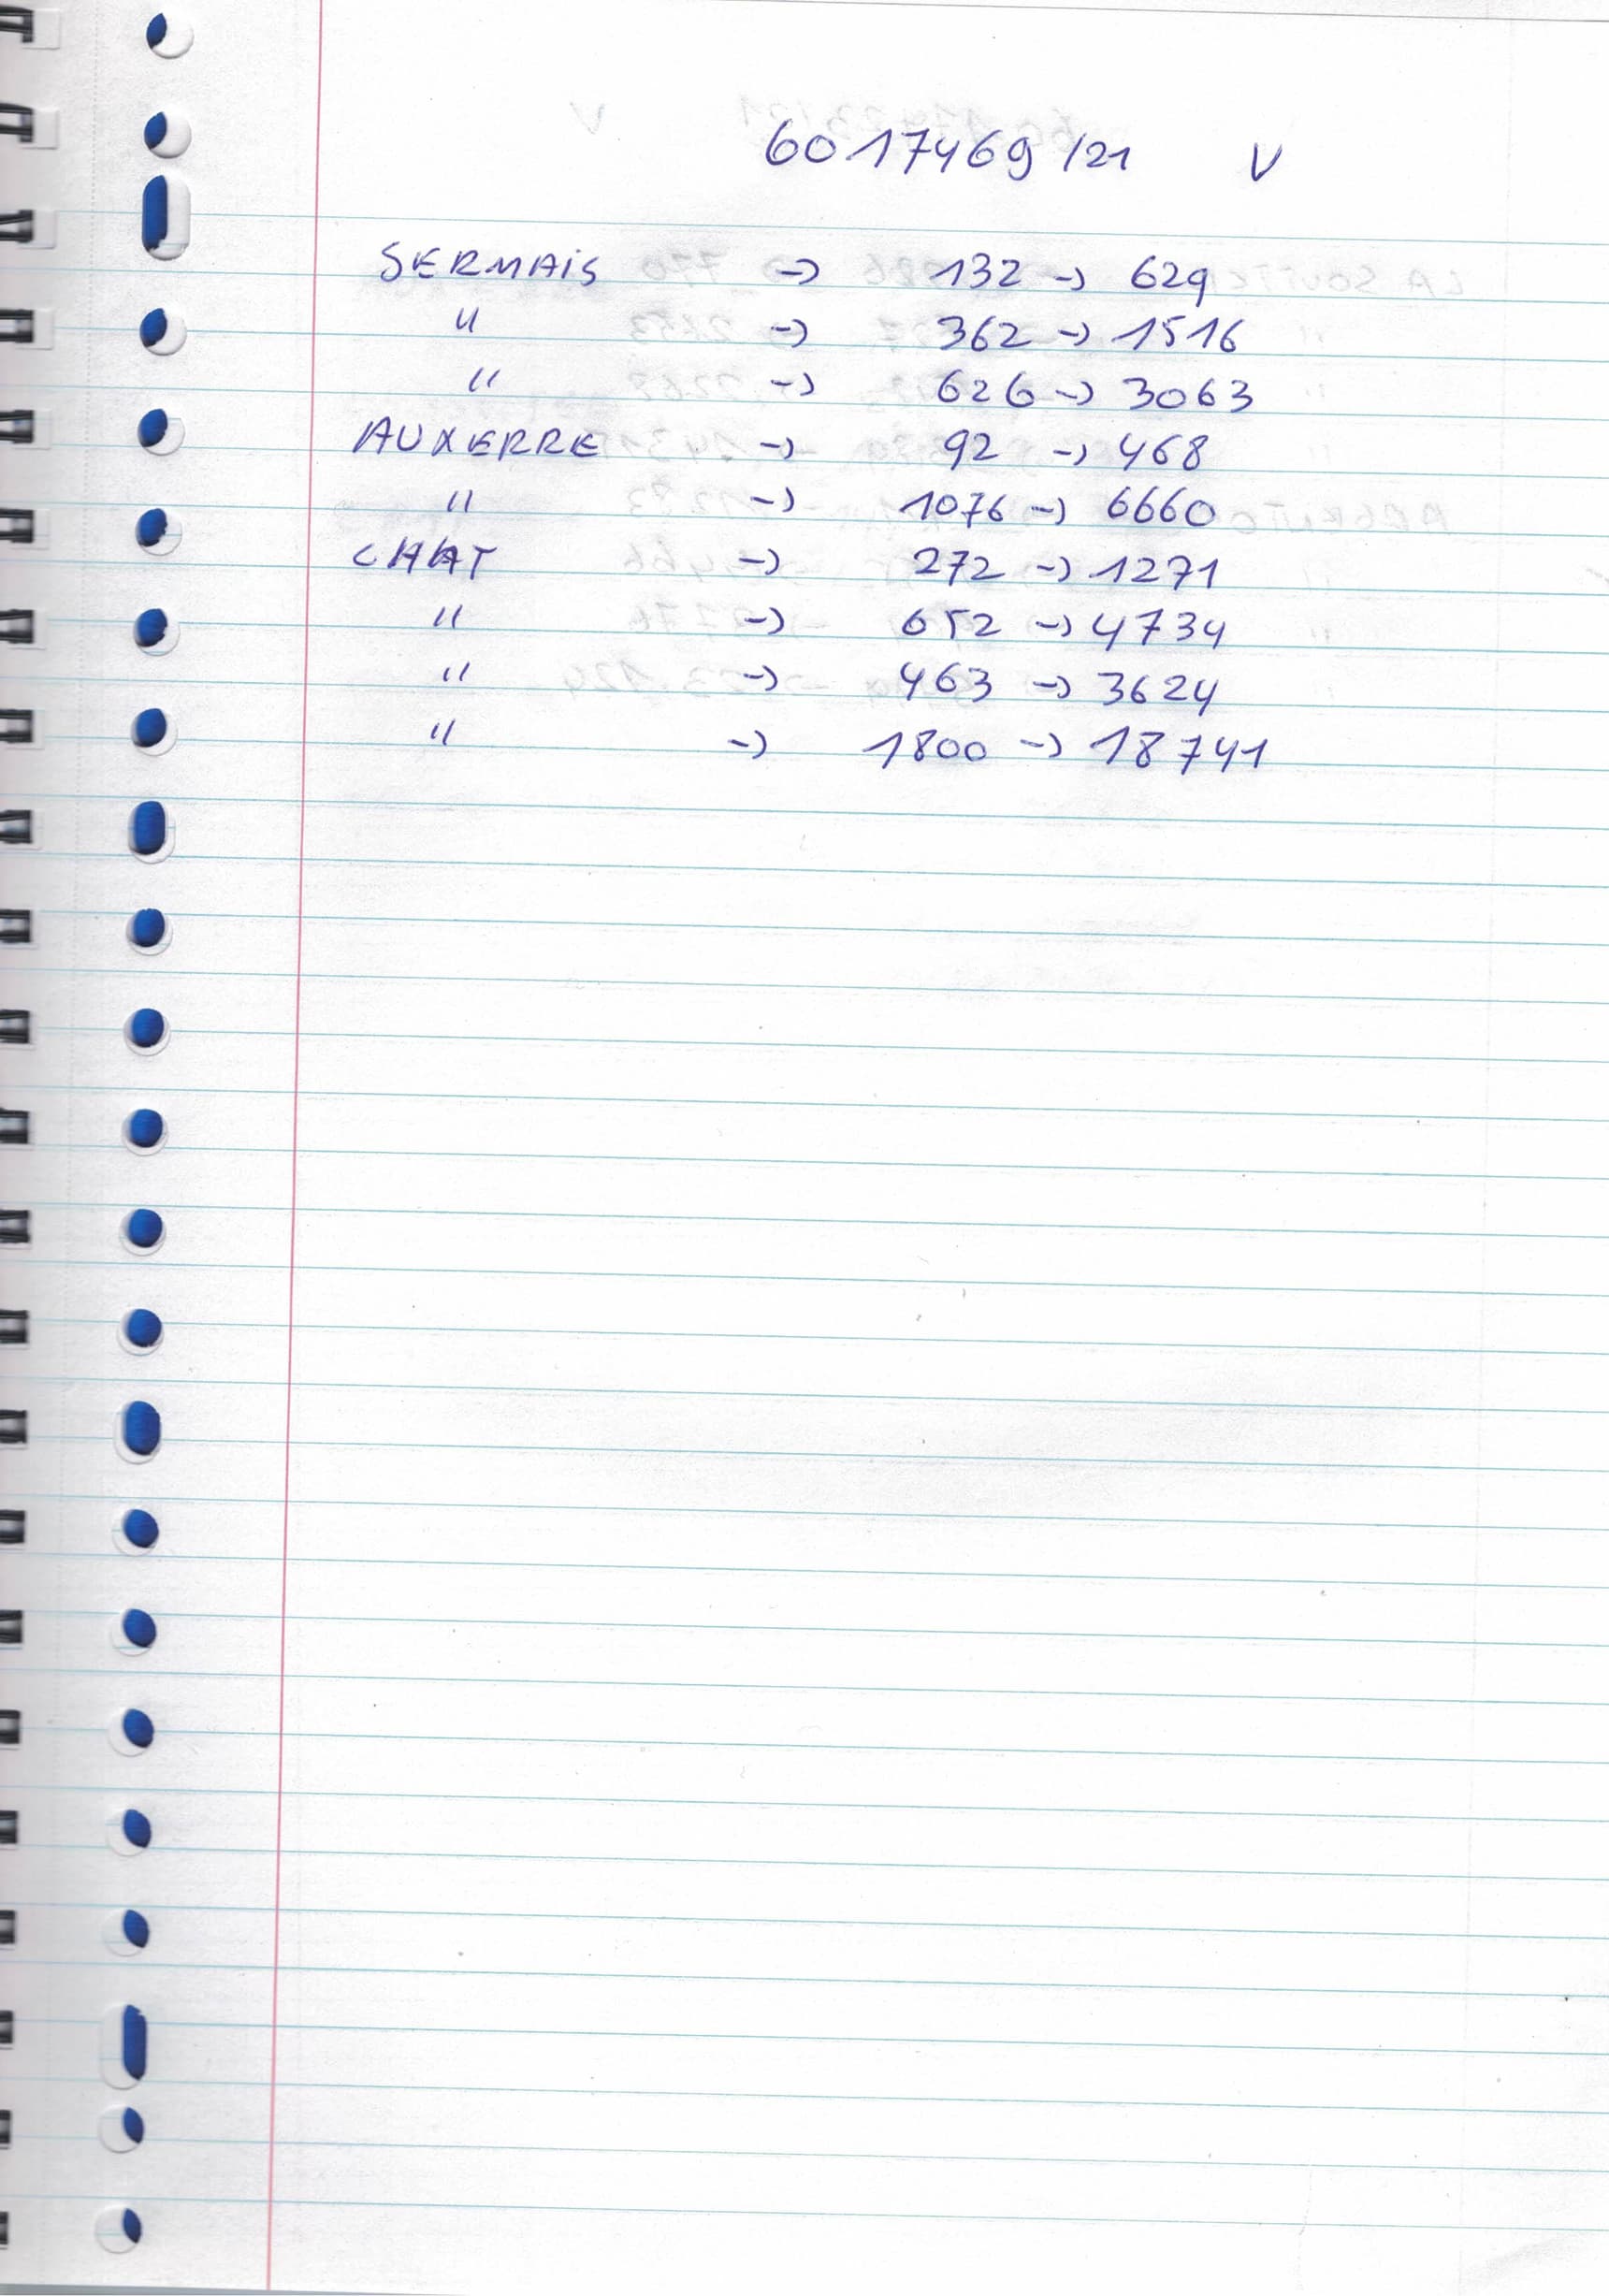 6017469/21 V
SERMAiS -> 132 -> 629
" -> 362 -> 1516
" -> 626 -> 3063
AUXERRE -> 92 -> 468
" -> 1076 -> 6660
CHAT -> 272 -> 1271
" -> 652 -> 4734
" -> 463 -> 3624
" -> 1800 -> 18741